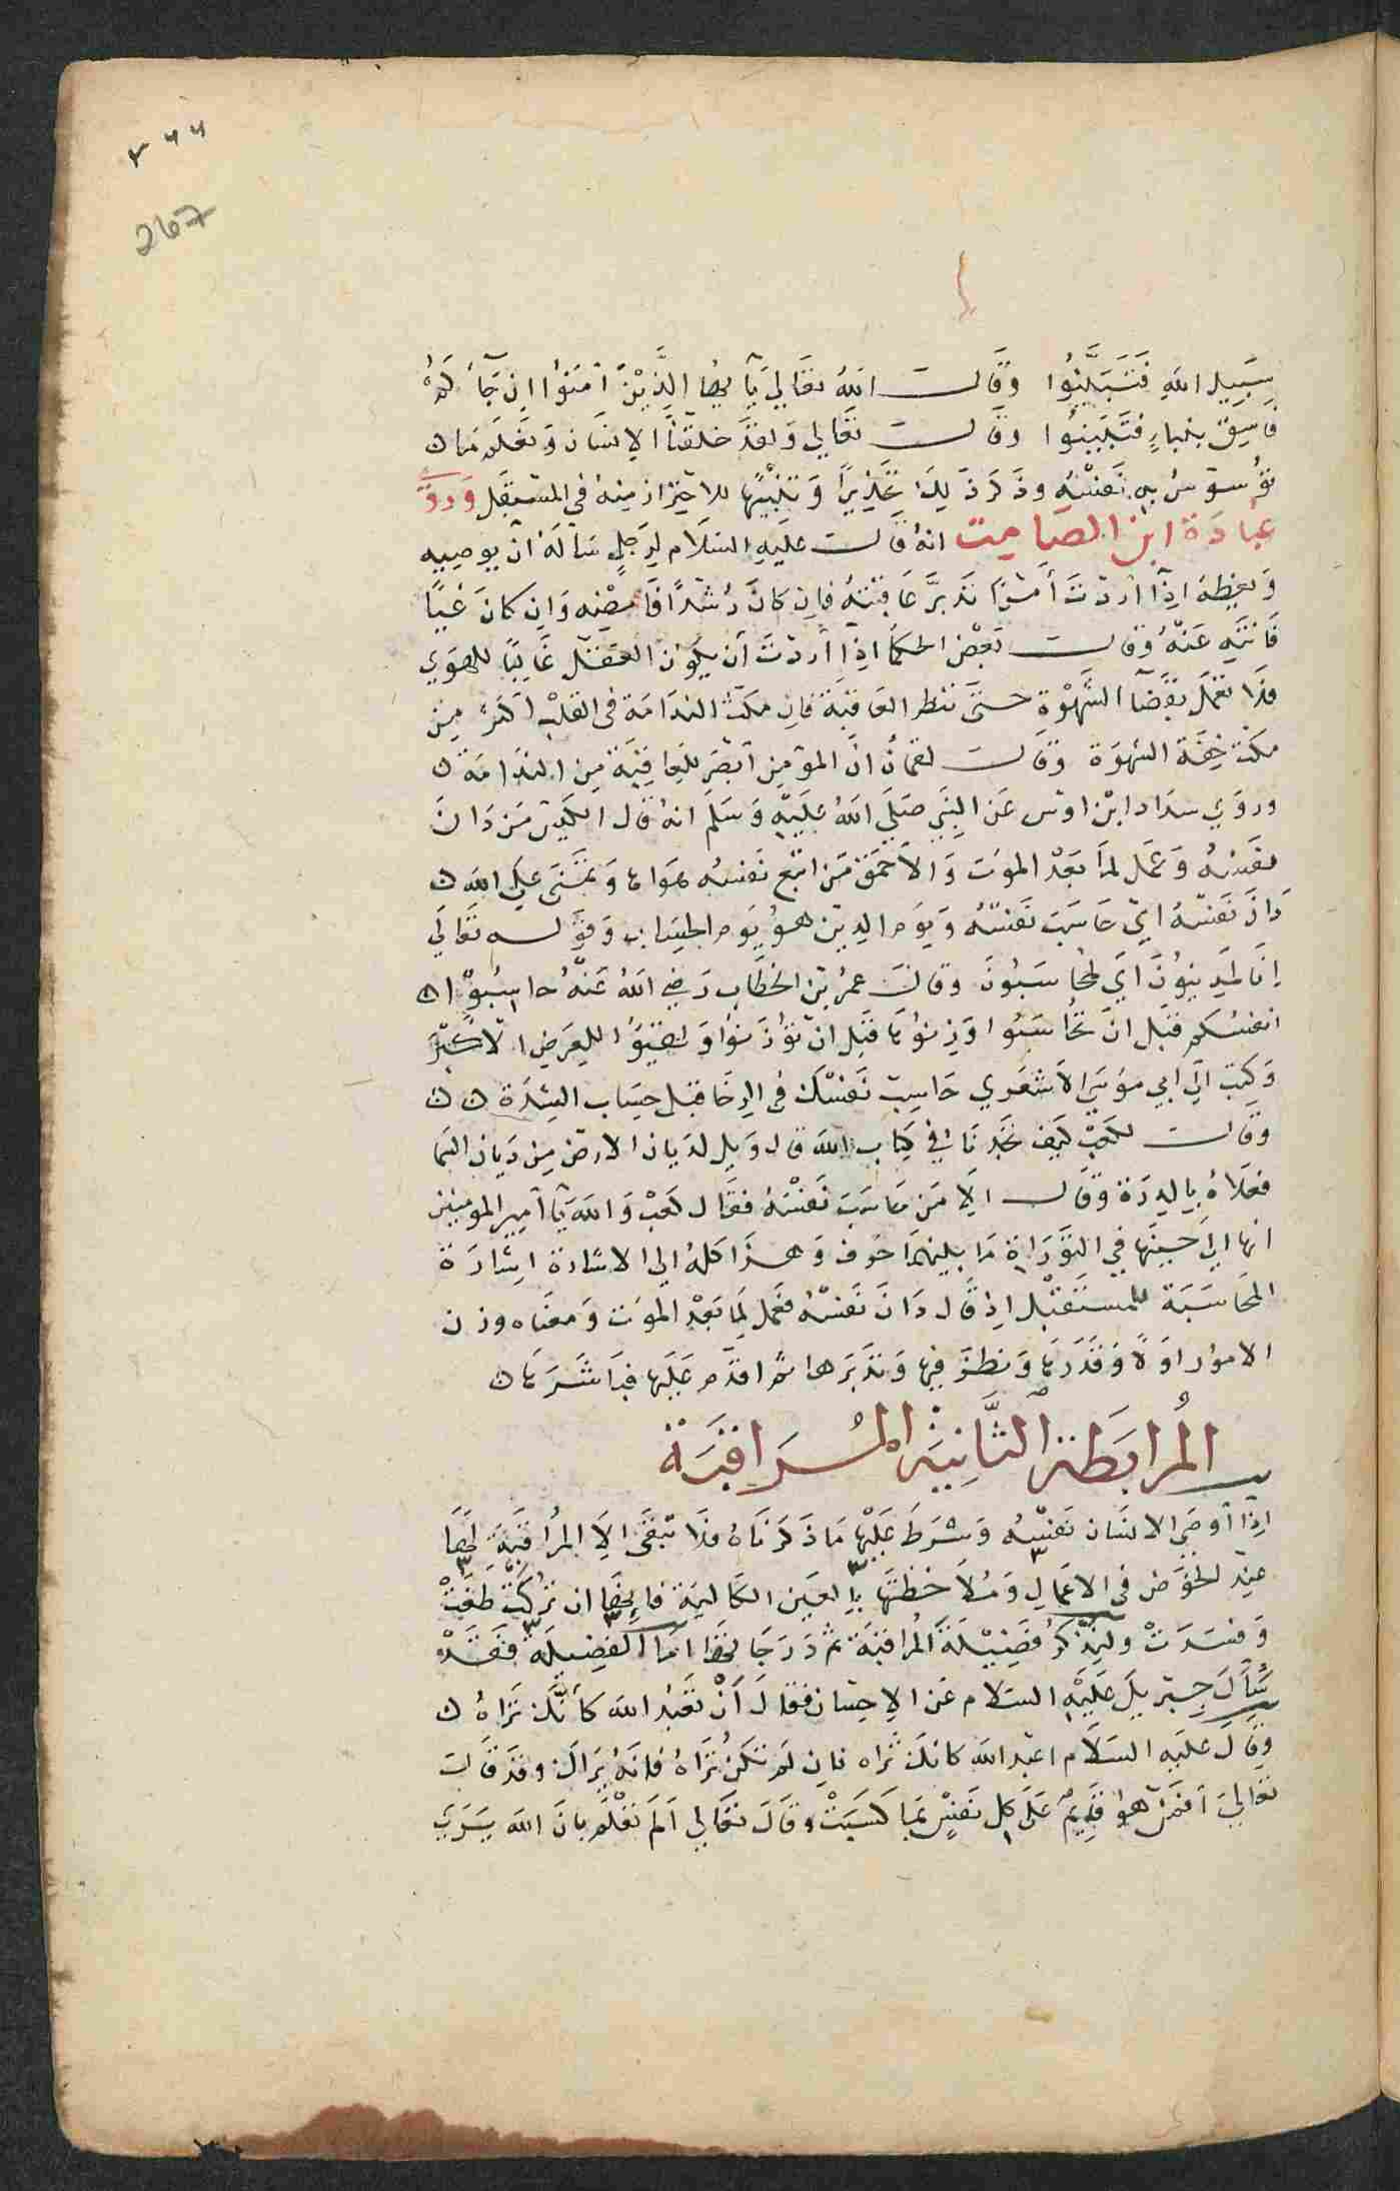 ٢٦٦
267
سَبِيلِ اللهِ فَتَبَيَّنُوا وَقَالَ اللهُ تَعَالَى يَآ يها الَّذِيْنَ آمَنُوا اِن جَآءَكُمْ
فَاسِق بِنَبَاءٍ فَتَبَيَنُوا وَقَالَ تَعَالي وَلقَد خلَقْنَا الاِنسَان وَنَعْلَم مَا
تُوَسْوِسُ بِهِ نَفْسُهُ وذَكَرَ ذَلِكَ تَحْذِيرًا وَتَنْبِيْهًا للاحْتِرَاز مِنهُ في المستقبَل وَرَوَى
عُبَادَة ابن الصامِت انهُ قَالَ عَليَهِ السَلاَم لِرَجلٍ سَالَهُ ان يوصِيه
وَيعِظهُ اِذَآ اَرَدْتَ أَمْرًا تَدَبرَّ عَاقِبَتَهُ فاِن كانَ رُشْدًا فَامْضِه وَاِن كَانَ غَيًا
فَانتَهِ عَنْهُ وقَالَ بَعْض الحكَمآ اِذَا أَرَدْتَ أَن يَكُون العَقْل غَالِبًا للهَوَي
فلاَ تعْمَلْ بقَضَآ الشَّهْوَةِ حَتى تنظر العَاقِبَة فاِن مكثَ الندَامَة في القلبْ اكثَر مِن
مكث خِفَة الشهوَة وَقَالَ لقمان ان المؤمِن ابصَر للعَاقِبَة مِن الندَامَة
وروَي سداد ابْن اوس عَن النَبي صَلَي اللهُ عَليَهِ وَسَلم انهُ قَال الكَيِّس مَن دَانَ
نفسَهُ وَعَمَل لمَا بَعْد الموَت وَالاَحمَق مَن اتبَع نَفسهُ هوَاهَا وَتَمنَي عَلى الله
دَانَ نَفسَهُ اي حَاسَبَ نَفسَهُ وَيَوم الدِين هوَ يَوم الحِسَاب وَقَوله تَعَالَي
إنَا لمَدِينوُنَ اَي لمحَاسَبُونَ وقالَ عمرُ بن الخطَاب رَضي اللهُ عَنهُ حاسِبُوا
انفسُكم قبَل انْ تحَاسَبُوا وَزِنوُهَا قبَل انْ تُوزَنوُا وَتَهَيؤا للعَرض الاكْبَر
وَكتبَ الَي ابي موَسَي الاَشعَري حَاسِب نَفسَكَ في الرخَا قبل حِسَاب الشِدَة
وَقال لكعَبْ كيف تجَدنَا في كِتاب الله قال وَيل لديان الارض مِن دَيان السَما
فعَلاَهُ بالدِرَة وَقَال اِلا مَن حَاسَبَ نَفْسَهُ فقَال كعَبْ وَاللهِ يَا امِيرَ المومِنين
انهَا الَي جَنبِهَا في التوَرَاة مَا بينهمَا حَرف وَهذَا كلهُ الي الاشارة اِشارَة
المحَاسَبَة للمستَقبَل اِذ قَال دَانَ نَفسَهُ فعَمل لمَا بَعْد الموَت وَمعَناه وزن
الامور اوَلاً وَقَدَرهَا وَنظرَ فيهَا وَتدَبرَها ثم اقدَم عَليَها فباشَرهَا
المُرابَطَة الثَّانِيَة المُرَاقَبَة
اِذَا أوصَي الانسَان نَفسَهُ وَشرَطَ عَليْها مَا ذكَرنَاهُ فلاَ يَبقَى اِلاَ المرُاقبَة لهَا
عِند الخوَض في الاَعمَالِ وَمُلاَحظَتهَا بالعَين الكَاليَة فاِنهَا ان تُركَتْ طغَتْ
وَفسَدَتْ ولنِذكرُ فَضِيْلَة المُراقبَة ثم دَرَجَاتهَا امَا الفضِيلَة فقَدْ
سُأَل جِبرِيلَ عَليَهِ السَلام عَن الاِحسَان فقَالَ أَنْ تعَبْد الله كأنَكَ تَرَاهُ
وَقَال عليَه السَلام اعْبد الله كانكَ تراه فاِن لمَ تكَنْ تَرَاهُ فاِنهُ يَرَاكَ وقد قَال
تعَالى افَمَن هوَ قايِمٌ عَلى كل نَفْسٍ بمَا كسَبَتْ وقَالَ تعَالي اَلَمَ يَعْلَم بانَ الله يَرَي